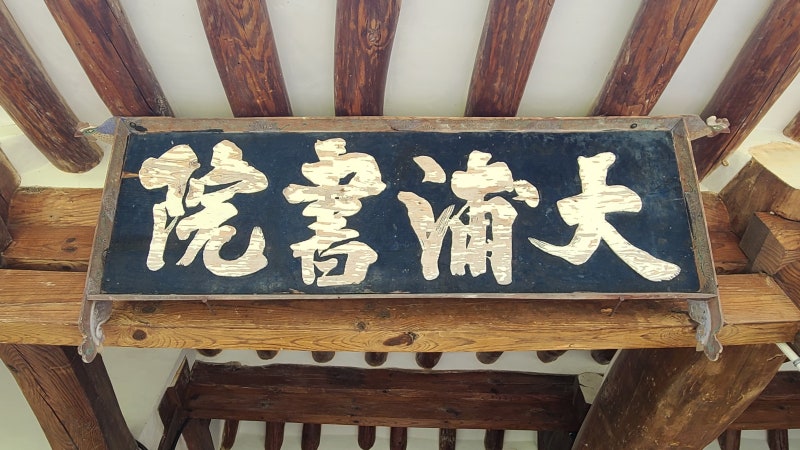 大浦書院